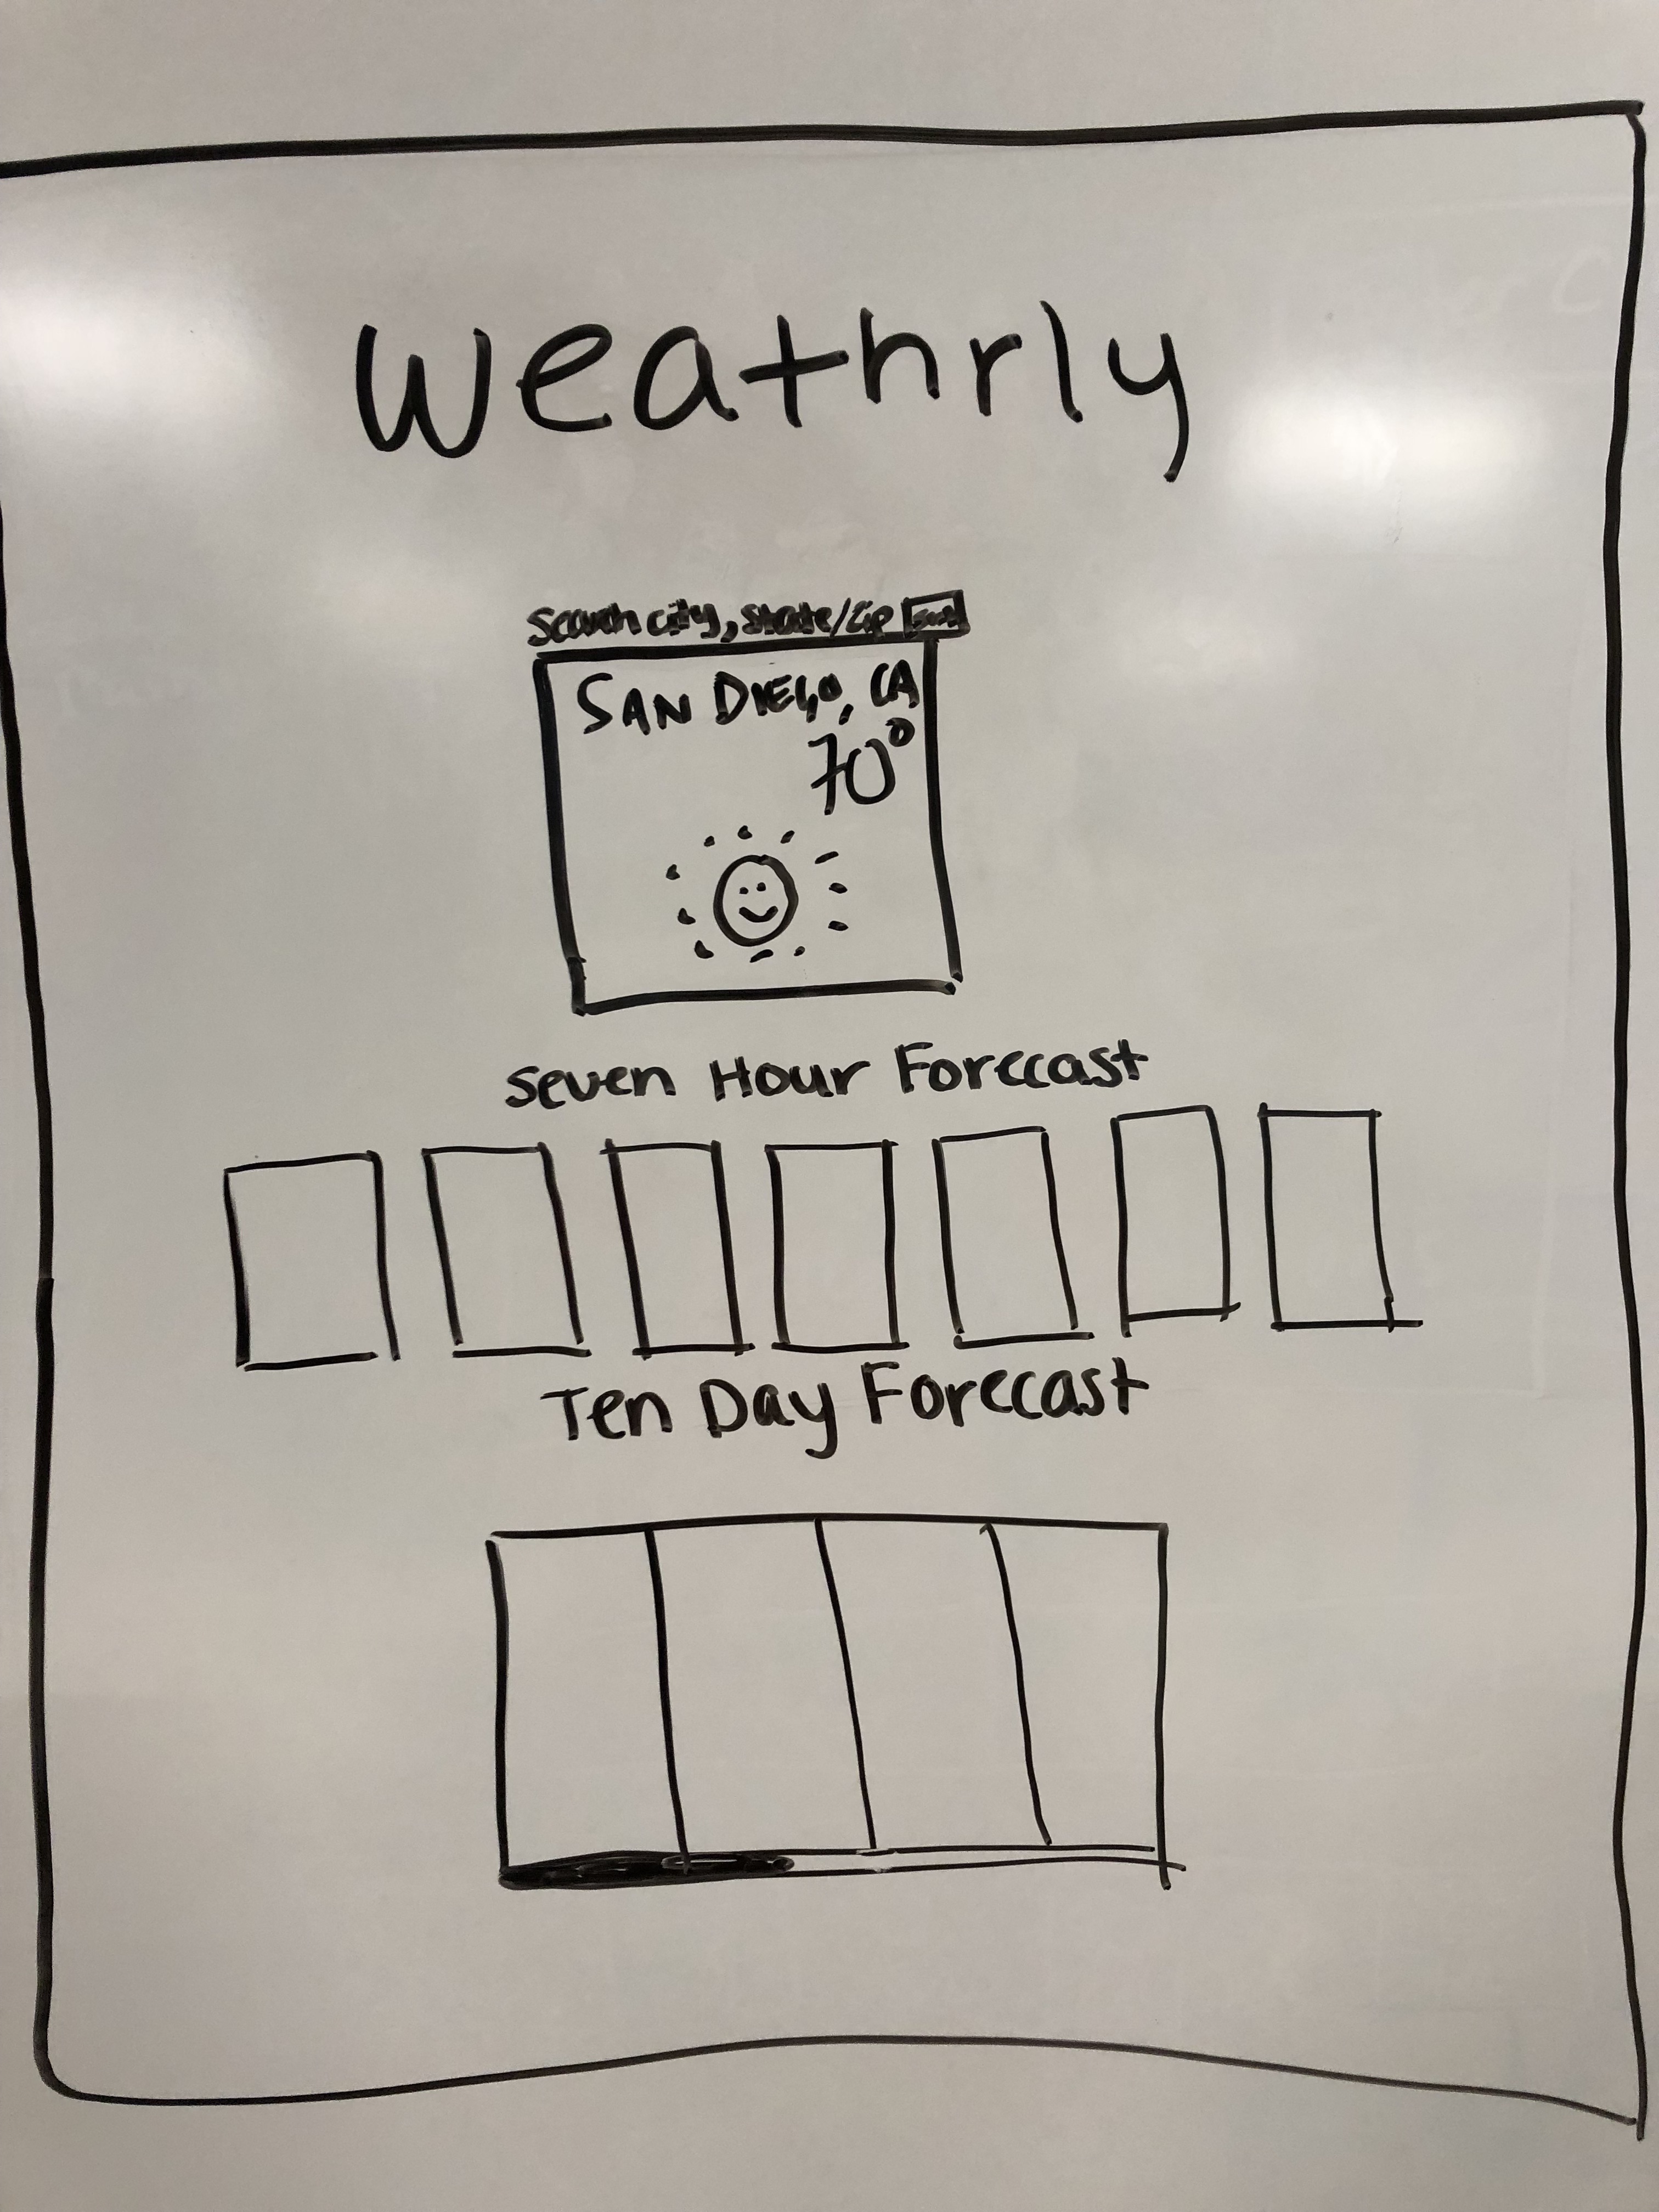 Weathrly
Search city, State/Zip
SAN DIEGO, CA
70°
Seven Hour Forecast
Ten Day Forecast